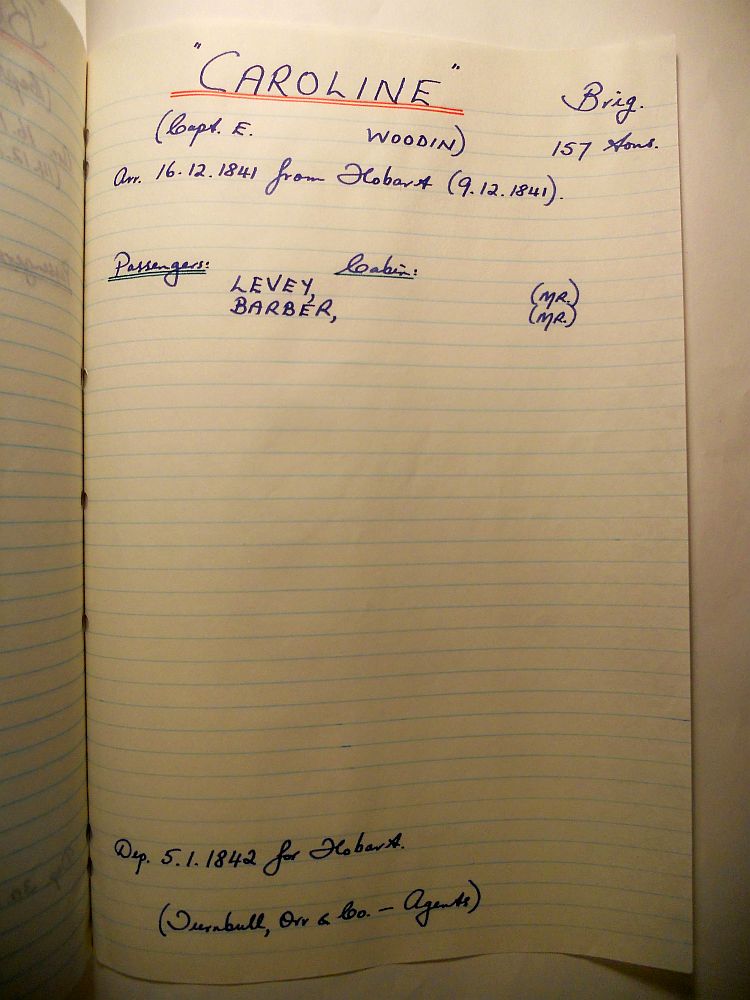 "CAROLINE" Brig.
(Capt. E. WOODIN) 157 tons.
Arr. 16.12.1841 from Hobart (9.12.1841).
Passengers: Cabin:
LEVEY, (MR.)
BARBER, (MR.)
Dep. 5.1.1842 for Hobart.
(Turnbull, Orr & Co. - Agents)